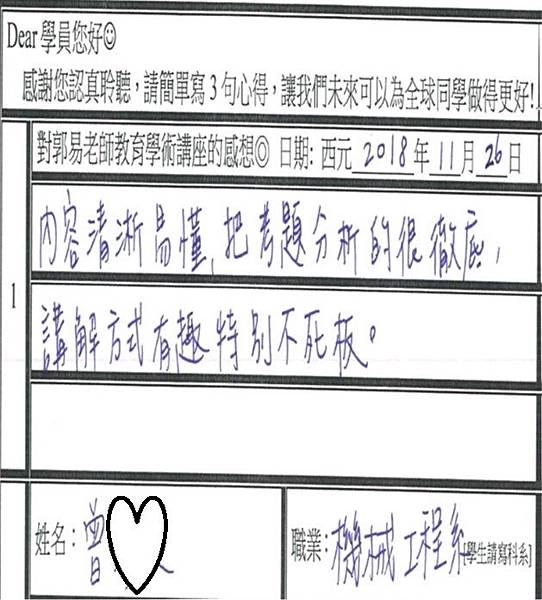 Dear 學員您好☺
感謝您認真聆聽，請簡單寫3句心得，讓我們未來可以為全球同學做得更好!
1
對郭易老師教育學術講座的感想◎ 日期: 西元2018年11月26日
內容清淅易懂,把考題分析的很徹底,
講解方式有趣特別不死板。
姓名:曾
職業:機械工程系[學生請寫科系]